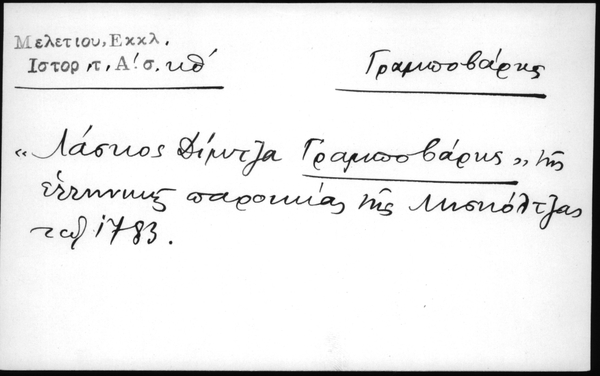 Μελετίου, Εκκλ.
Ιστορ. τ. Α! σ. κθ'
Γραμποβάρης
« Λάσκος Δίμτζα Γραμποβάρης » τῆς
ἑλληνικῆς παροικίας τῆς Μισκόλτζας
τοῦ 1783.